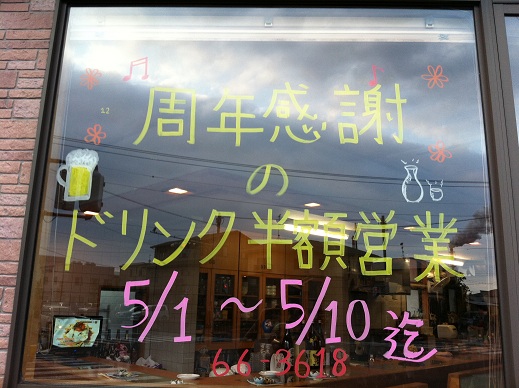 12
周年感謝
の
ドリンク半額営業
5/1～5/10迄
66-3618